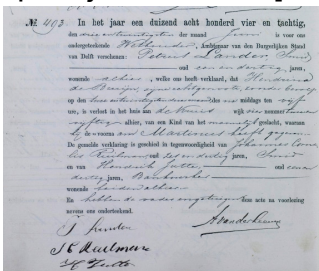 № 493. In het jaar een duizend acht honderd vier en tachtig,
den drie en twintigsten der maand Juni is voor ons
ondergeteekende Wethouder, Ambtenaar van den Burgerlijken Stand
van Delft verschenen: Petrus Linden Smid
oud een dertig jaren,
wonende alhier, welke ons heeft verklaard, dat Hendrina
de zijne echtgenoote, zonder beroep
op den twee en twintigsten dezer des middags ten vijf
ure, is verlost in het huis aan de wijk vier nummer
vijftig alhier, van een Kind van het mannelijk geslacht, waaraan
hij de voornaam Martinus heeft gegeven
De gemelde verklaring is geschied in tegenwoordigheid van Johannes Corne
lis Meulman oud zes en dertig jaren, Smid
en van Hendrik Jutte oud een en
dertig jaren,
wonende beiden alhier
En hebben de vader en getuigen deze acte na voorlezing
nevens ons onderteekend.
P Linden
J C Meulman
H Jutte